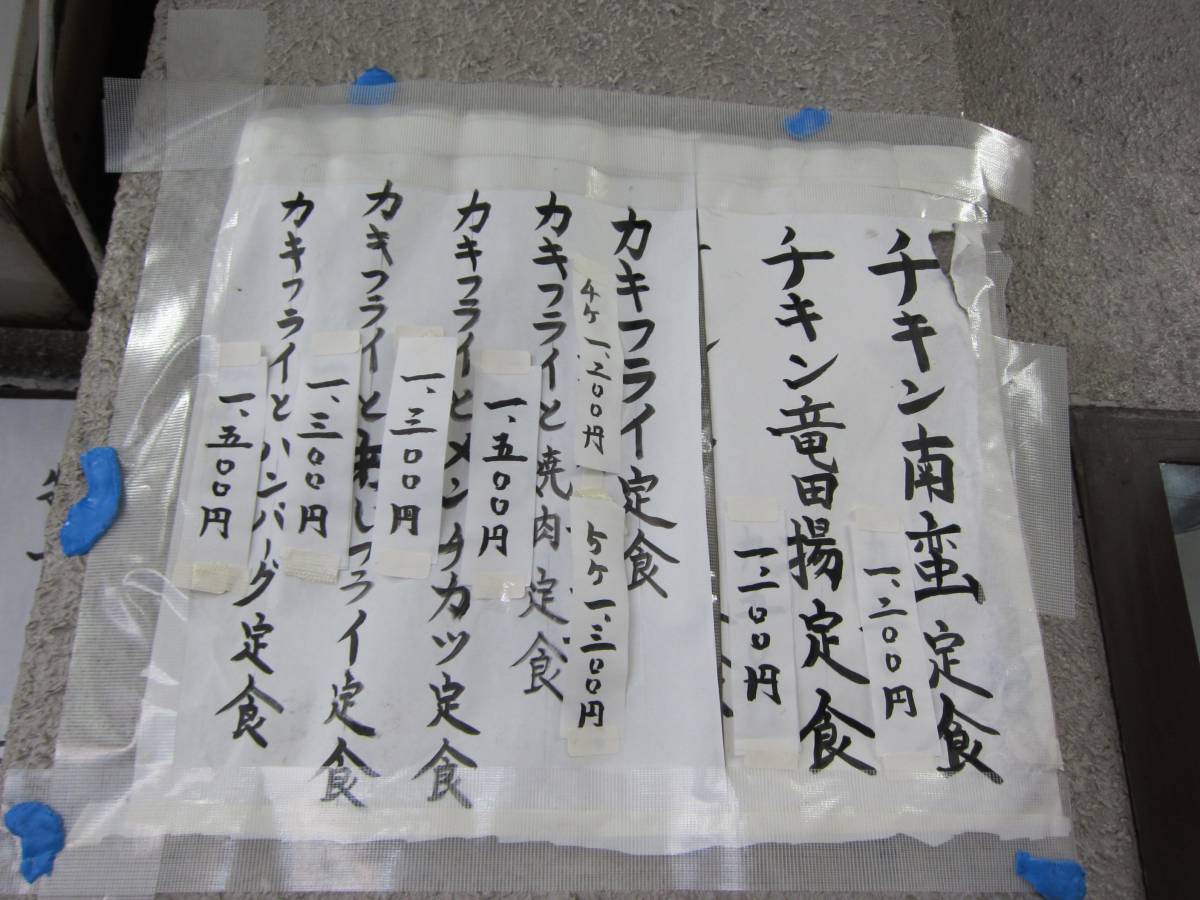 チキン南蛮定食
一、二〇〇円
チキン竜田揚定食
一、二〇〇円
カキフライ定食
4ヶ 一、二〇〇円
5ヶ 一、三〇〇円
カキフライと焼肉定食
一、五〇〇円
カキフライとメンチカツ定食
一、三〇〇円
カキフライと フライ定食
一、三〇〇円
カキフライとハンバーグ定食
一、五〇〇円